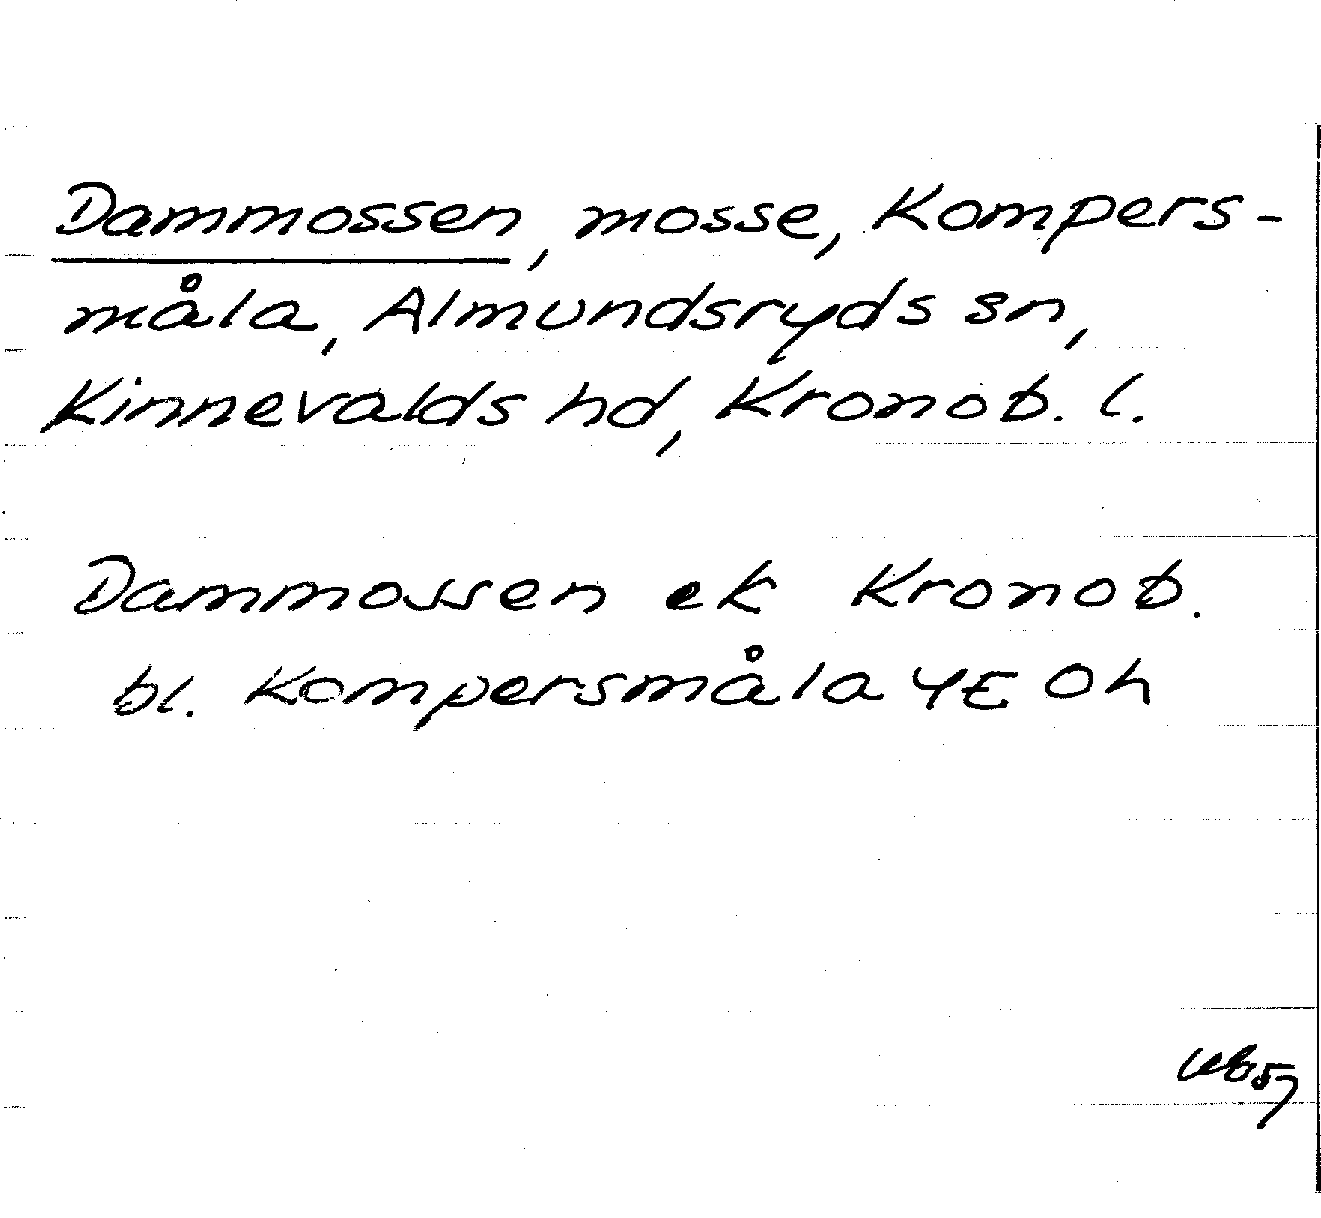 Dammossen, mosse, Kompers-
måla, Almundsryds sn,
Kinnevalds hd, Kronob. l.
Dammossen ek Kronob.
bl. Kompersmåla 4E 0h